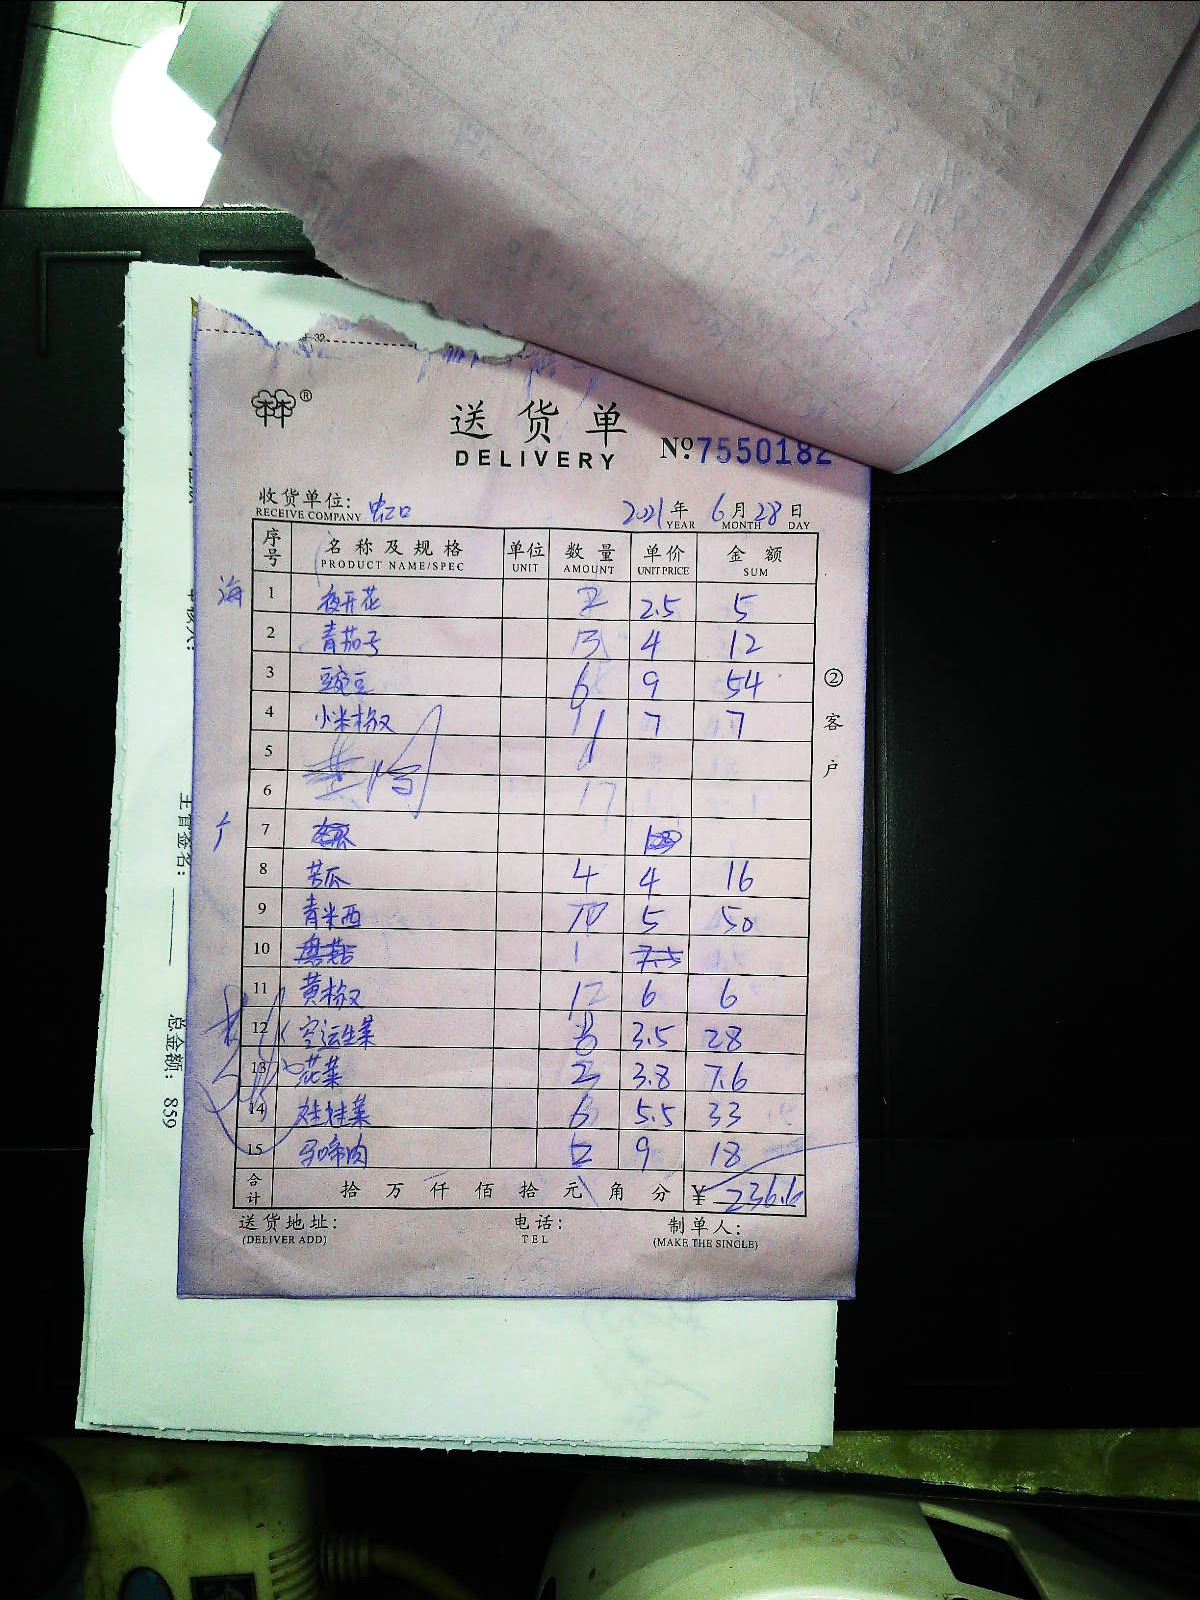 送货单
DELIVERY
№:7550182
收货单位: 虹口 2021年 6月28日
RECEIVE COMPANY YEAR MONTH DAY
序号 名称及规格 单位 数量 单价 金额
PRODUCT NAME/SPEC UNIT AMOUNT UNIT PRICE SUM
海 1 夜开花 2 2.5 5
2 青茄子 3 4 12
3 豌豆 6 9 54
4 小米椒 1 7 7
5
6
7
8 苦瓜 4 4 16
9 青米西 10 5 50
10 1 7.5
11 黄椒 1 6 6
12 空运生菜 8 3.5 28
13 花菜 2 3.8 7.6
14 娃娃菜 6 5.5 33
15 2 9 18
合计 拾 万 仟 佰 拾 元 角 分 ¥ 236.6
送货地址: 电话: 制单人:
(DELIVER ADD) TEL (MAKE THE SINGLE)
②客户
主管签名:
总金额: 859